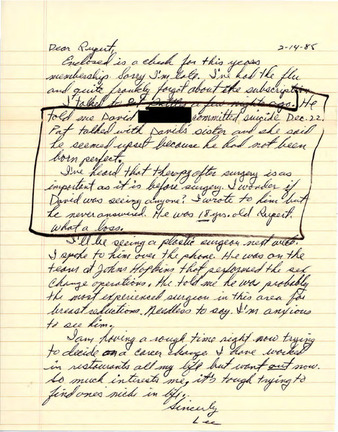 2-14-85
Dear Rupert,
Enclosed is a check for this years
membership. Sorry I'm late. I've had the flu
and quite frankly forgot about the subscription.
I talked to a few nights ago. He
told me David committed suicide Dec. 22.
Pat talked with Davids sister and she said
he seemed upset because he had not been
born perfect.
I've heard that therapy after surgery is as
important as it is before surgery. I wonder if
David was seeing anyone? I wrote to him but
he never answered. He was 18 yrs. old Rupert.
what a loss.
I'll be seeing a plastic surgeon next week.
I spoke to him over the phone. He was on the
team at Johns Hopkins that performed the sex
change operations. He told me he was probably
the most experienced surgeon in this area for
breast reductions. Needless to say, I'm anxious
to see him.
I am having a rough time right now trying
to decide on a career change. I have worked
in restaurants all my life but want out now.
So much interests me, it's tough trying to
find ones niche in life.
Sincerly
Lee